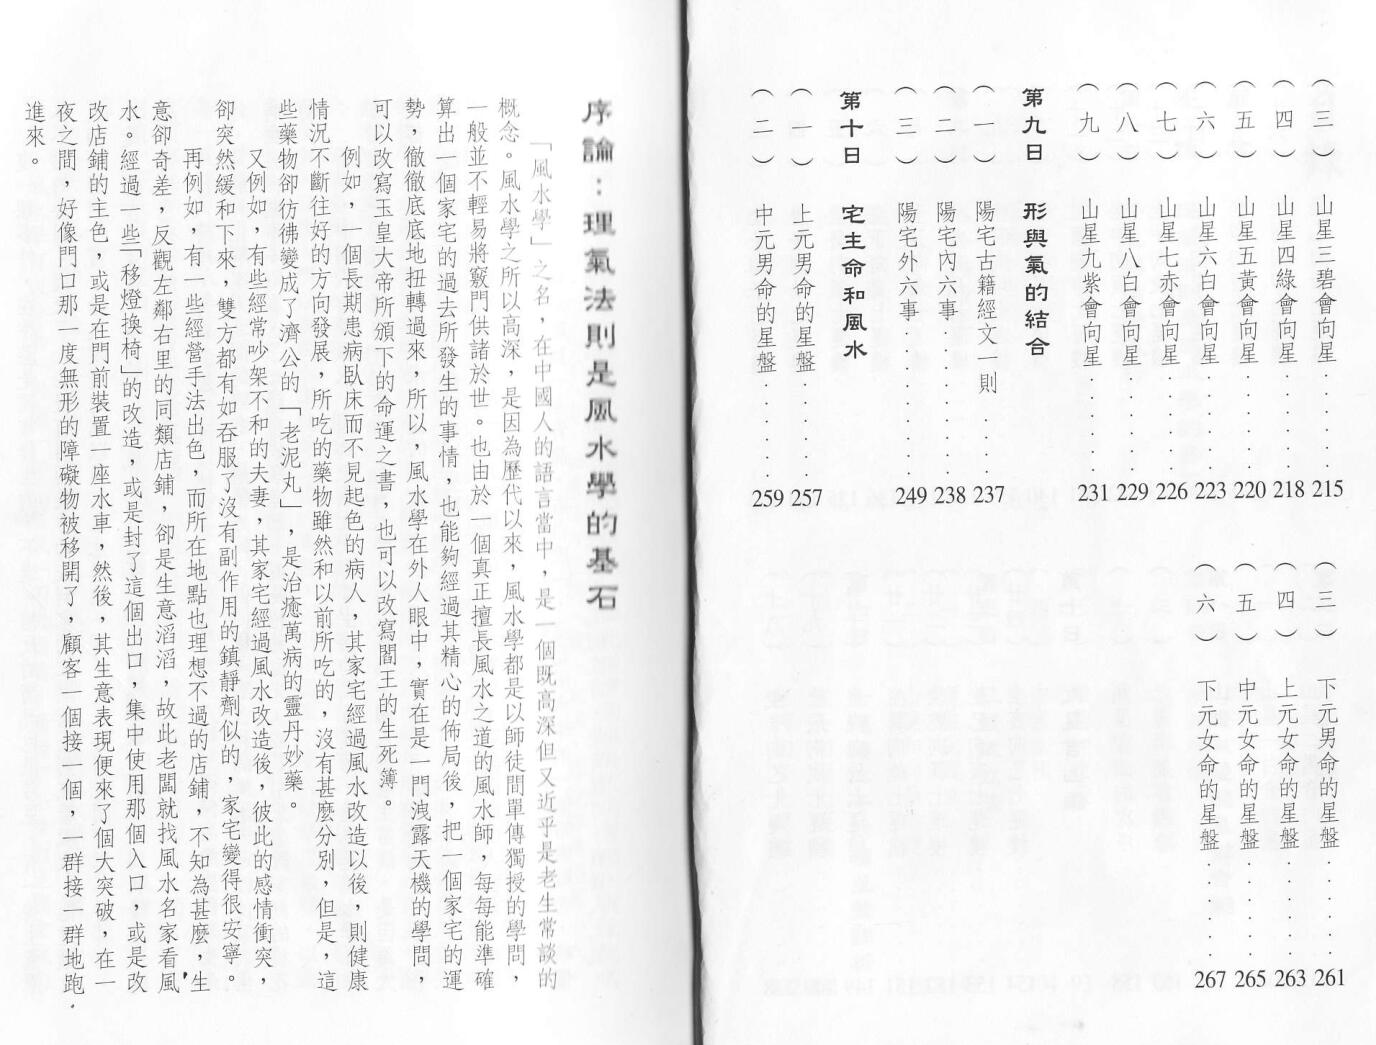 (三) 山星三碧會向星......215
(四) 山星四綠會向星......218
(五) 山星五黃會向星......220
(六) 山星六白會向星......223
(七) 山星七赤會向星......226
(八) 山星八白會向星......229
(九) 山星九紫會向星......231
第九日 形與氣的結合
(一) 陽宅古籍經文一則......237
(二) 陽宅內六事......238
(三) 陽宅外六事......249
第十日 宅主命和風水
(一) 上元男命的星盤......257
(二) 中元男命的星盤......259
(三) 下元男命的星盤......261
(四) 上元女命的星盤......263
(五) 中元女命的星盤......265
(六) 下元女命的星盤......267
序論：理氣法則是風水學的基石
「風水學」之名，在中國人的語言當中，是一個既高深但又近乎是老生常談的
概念。風水學之所以高深，是因為歷代以來，風水學都是以師徒間單傳獨授的學問，
一般並不輕易將竅門供諸於世。也由於一個真正擅長風水之道的風水師，每每能準確
算出一個家宅的過去所發生的事情，也能夠經過其精心的佈局後，把一個家宅的運
勢，徹徹底底地扭轉過來，所以，風水學在外人眼中，實在是一門洩露天機的學問，
可以改寫玉皇大帝所頒下的命運之書，也可以改寫閻王的生死簿。
例如，一個長期患病臥床而不見起色的病人，其家宅經過風水改造以後，則健康
情況不斷往好的方向發展，所吃的藥物雖然和以前所吃的，沒有甚麼分別，但是，這
些藥物卻彷彿變成了濟公的「老泥丸」，是治癒萬病的靈丹妙藥。
又例如，有些經常吵架不和的夫妻，其家宅經過風水改造後，彼此的感情衝突，
卻突然緩和下來，雙方都有如吞服了沒有副作用的鎮靜劑似的，家宅變得很安寧。
再例如，有一些經營手法出色，而所在地點也理想不過的店鋪，不知為甚麼，生
意卻奇差，反觀左鄰右里的同類店鋪，卻是生意滔滔，故此老闆就找風水名家看風
水。經過一些「移燈換椅」的改造，或是封了這個出口，集中使用那個入口，或是改
改店鋪的主色，或是在門前裝置一座水車，然後，其生意表現便來了個大突破，在一
夜之間，好像門口那一度無形的障礙物被移開了，顧客一個接一個，一群接一群地跑
進來。